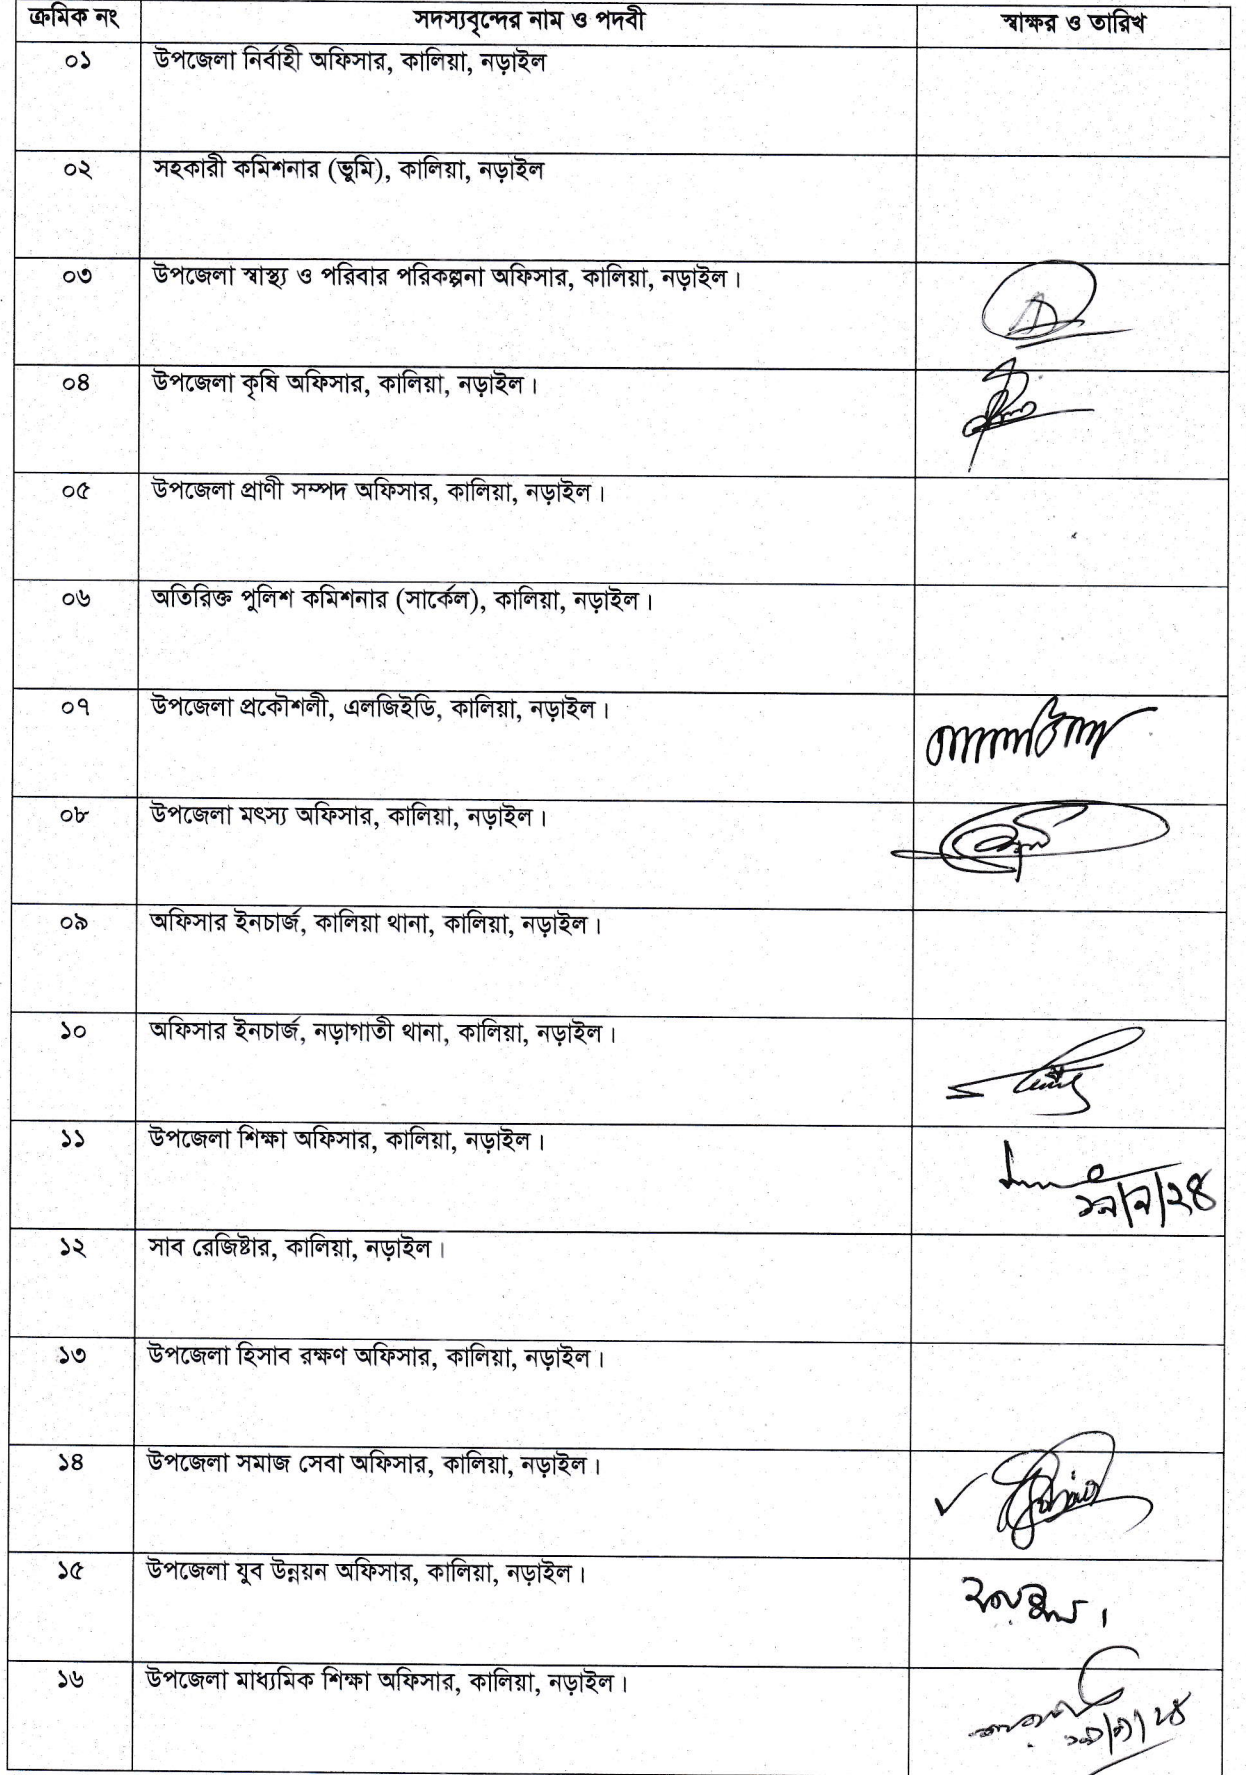 ক্রমিক নং সদস্যবৃন্দের নাম ও পদবী স্বাক্ষর ও তারিখ
০১ উপজেলা নির্বাহী অফিসার, কালিয়া, নড়াইল
০২ সহকারী কমিশনার (ভূমি), কালিয়া, নড়াইল
০৩ উপজেলা স্বাস্থ্য ও পরিবার পরিকল্পনা অফিসার, কালিয়া, নড়াইল।
০৪ উপজেলা কৃষি অফিসার, কালিয়া, নড়াইল।
০৫ উপজেলা প্রাণী সম্পদ অফিসার, কালিয়া, নড়াইল।
০৬ অতিরিক্ত পুলিশ কমিশনার (সার্কেল), কালিয়া, নড়াইল।
০৭ উপজেলা প্রকৌশলী, এলজিইডি, কালিয়া, নড়াইল।
০৮ উপজেলা মৎস্য অফিসার, কালিয়া, নড়াইল।
০৯ অফিসার ইনচার্জ, কালিয়া থানা, কালিয়া, নড়াইল।
১০ অফিসার ইনচার্জ, নড়াগাতী থানা, কালিয়া, নড়াইল।
১১ উপজেলা শিক্ষা অফিসার, কালিয়া, নড়াইল।
১২ সাব রেজিষ্টার, কালিয়া, নড়াইল।
১৩ উপজেলা হিসাব রক্ষণ অফিসার, কালিয়া, নড়াইল।
১৪ উপজেলা সমাজ সেবা অফিসার, কালিয়া, নড়াইল।
১৫ উপজেলা যুব উন্নয়ন অফিসার, কালিয়া, নড়াইল।
১৬ উপজেলা মাধ্যমিক শিক্ষা অফিসার, কালিয়া, নড়াইল।